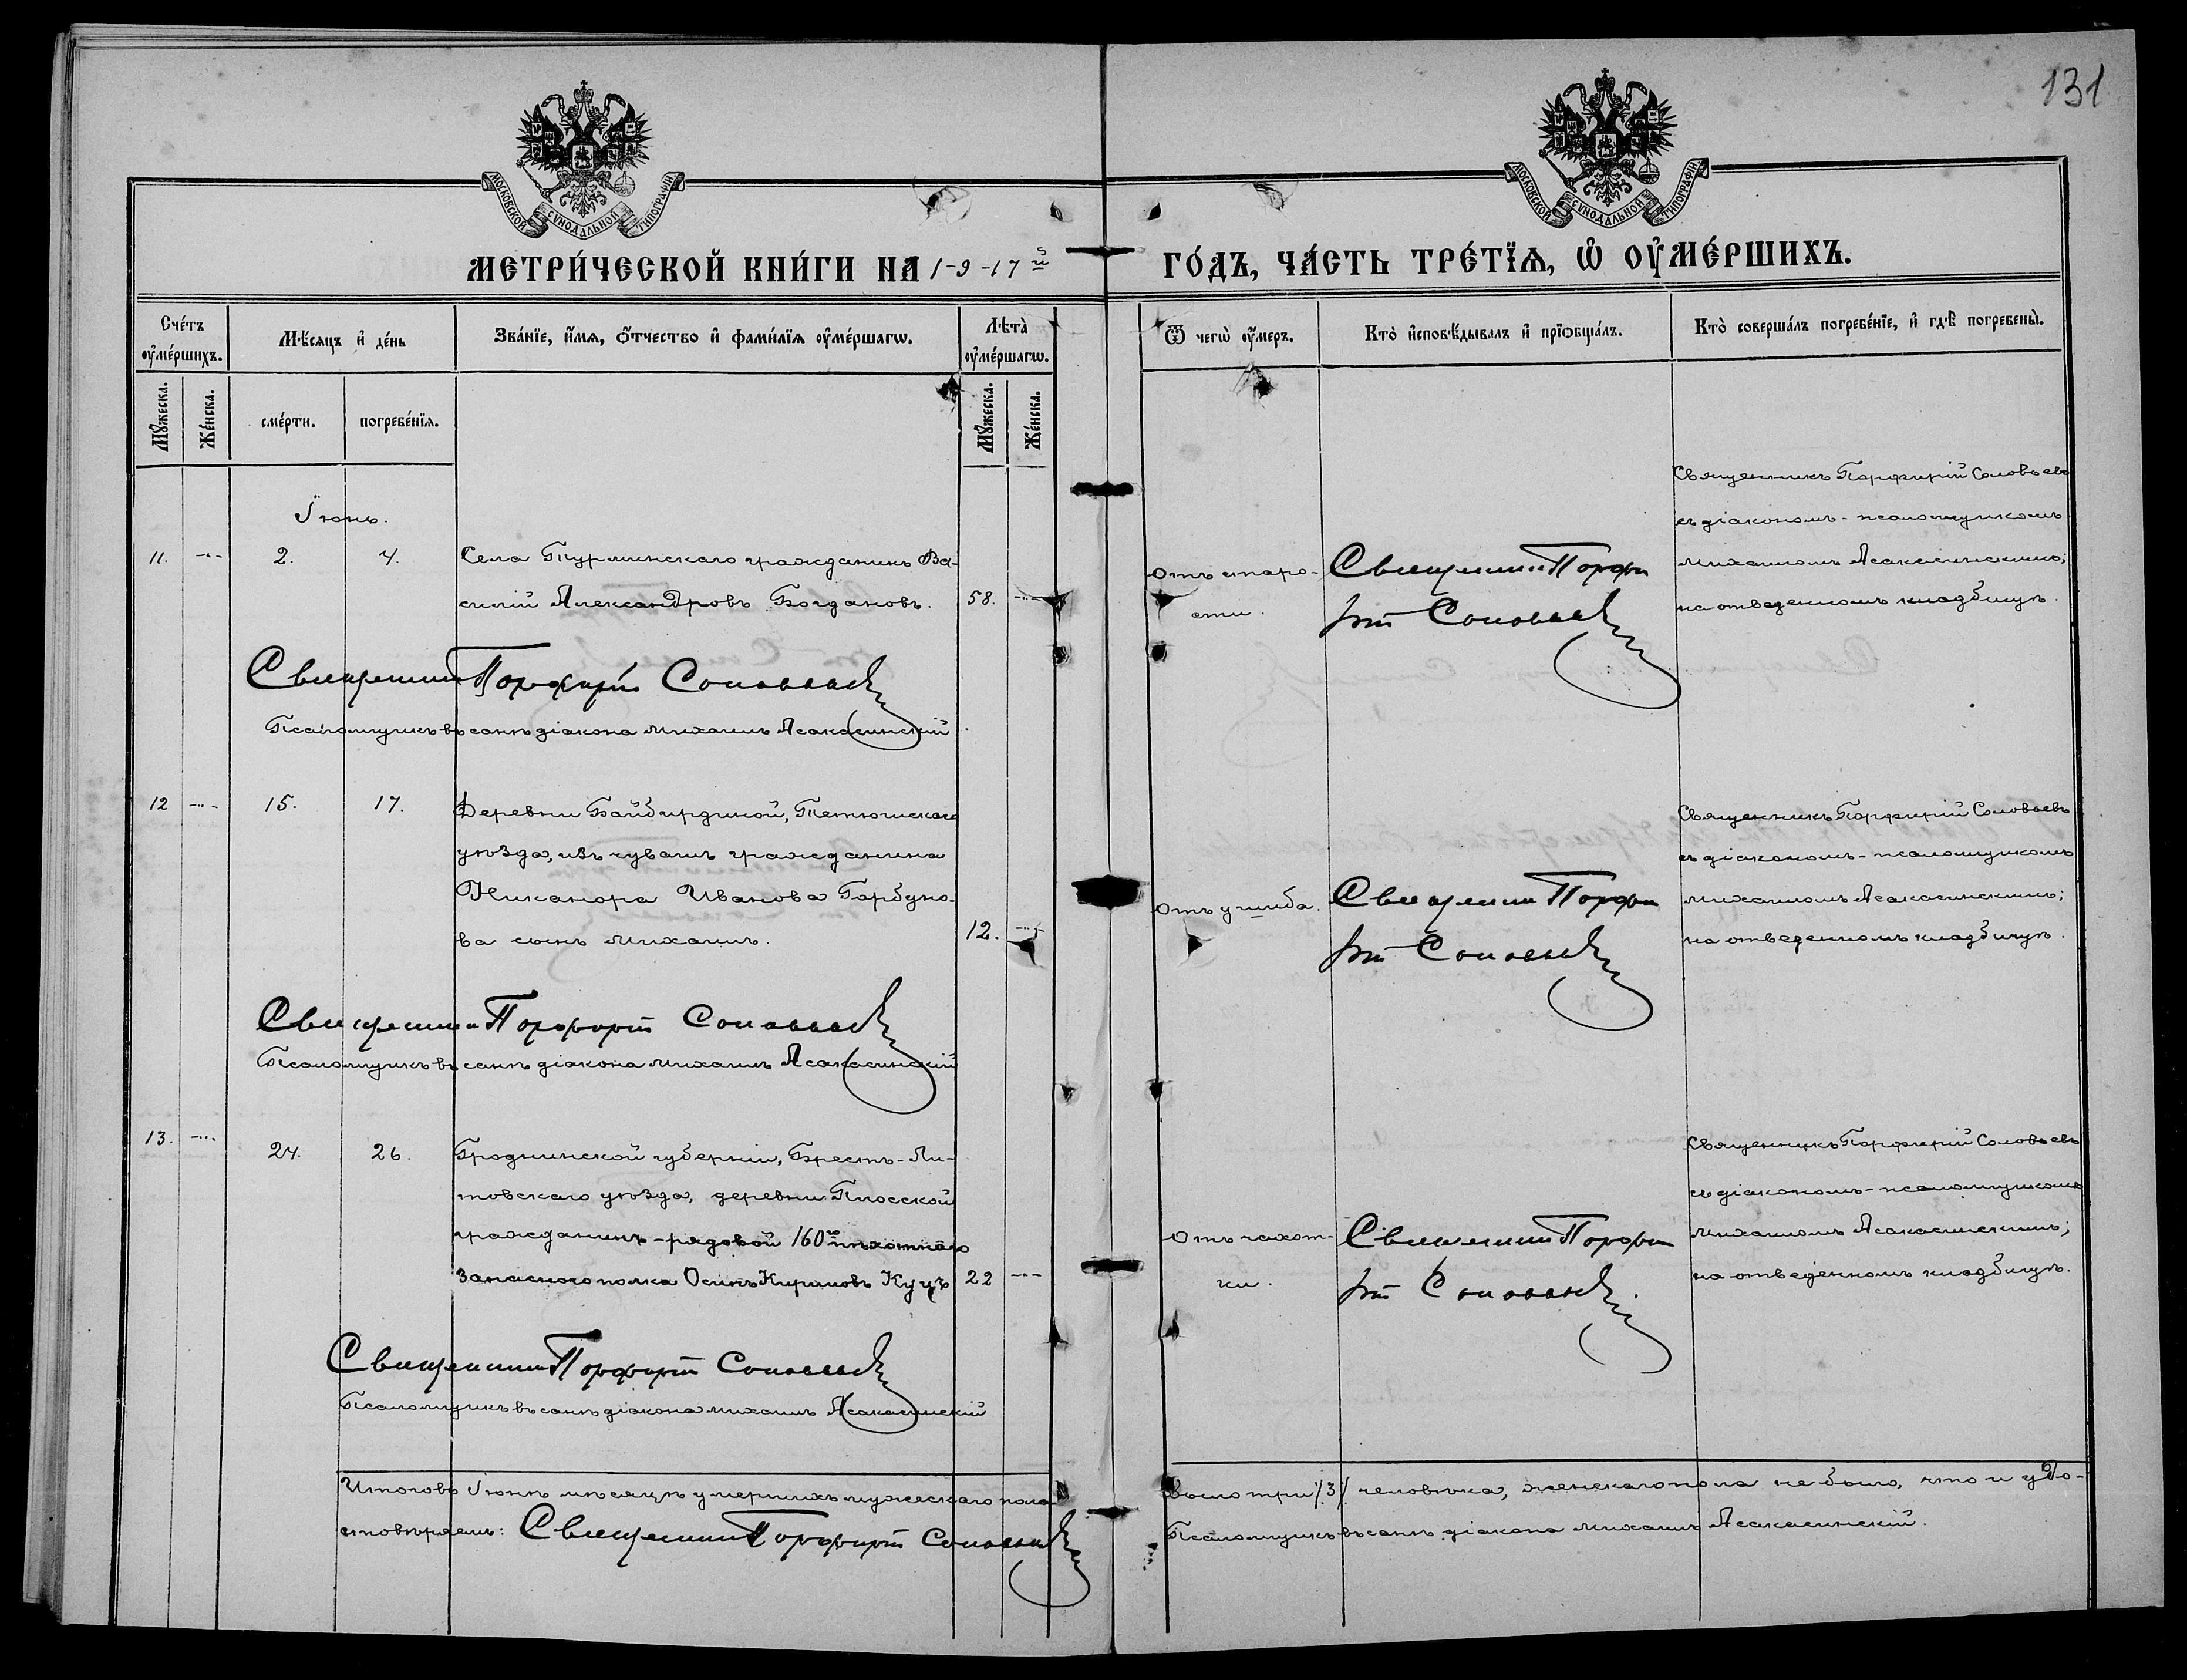 131
МОСКОВСКОЙ СУНОДАЛЬНОЙ ТИПОГРАФІИ
МОСКОВСКОЙ СУНОДАЛЬНОЙ ТИПОГРАФІИ
МЕТРИ́ЧЕСКОЙ КНИ́ГИ НА 1-9-17й
ГО́ДЪ, ЧА́СТЬ ТРЕ́ТЇѦ, Ѡ҆ ОУ҆МЕ́РШИХЪ.
Сче́тъ оу҆ме́ршихъ.
Мѣ́сяцъ и҆ де́нь
Зва́нїе, и҆́мѧ, ѻ҆́тчество и҆ фами́лїѧ оу҆ме́ршагѡ.
Лѣта̀ оу҆ме́ршагѡ.
Ѿ чегѡ̀ оу҆́меръ.
Кто̀ и҆сповѣ́дывалъ и҆ прїѻбща́лъ.
Кто̀ соверша́лъ погребе́нїе, и҆ гдѣ̀ погребены̀.
Му́жеска.
Же́нска.
сме́рти.
погребе́нїѧ.
Му́жеска.
Же́нска.
Іюнь.
11.
2.
4.
Села Турминскаго гражданинъ Ва-
силій Александровъ Богдановъ.
58.
Отъ старо-
сти.
Священникъ Порфи
рій Соловьевъ
Священникъ Порфирій Соловьевъ
съ діакономъ-псаломщикомъ
Михаиломъ Асакасинскимъ;
на отведенномъ кладбищѣ.
Священникъ Порфирій Соловьевъ
Псаломщикъ въ санѣ діакона Михаилъ Асакасинскій
12
15.
17.
Деревни Байбирдиной, Тетюшскаго
уѣзда, изъ чувашъ гражданина
Никанора Иванова Горбуно-
ва сынъ Михаилъ.
12.
Отъ ушиба.
Священникъ Порфи
рій Соловьевъ
Священникъ Порфирій Соловьевъ
съ діакономъ-псаломщикомъ
Михаиломъ Асакасинскимъ;
на отведенномъ кладбищѣ.
Священникъ Порфирій Соловьевъ
Псаломщикъ въ санѣ діакона Михаилъ Асакасинскій
13.
24.
26.
Гродненской губерніи, Брестъ-Ли-
товскаго уѣзда, деревни Плосской
гражданинъ-рядовой 160го пѣхотнаго
Запасного полка Осипъ Кириловъ Куцъ
22
Отъ чахот-
ки.
Священникъ Порфи
рій Соловьевъ
Священникъ Порфирій Соловьевъ
съ діакономъ-псаломщикомъ
Михаиломъ Асакасинскимъ;
на отведенномъ кладбищѣ.
Священникъ Порфирій Соловьевъ
Псаломщикъ въ санѣ діакона Михаилъ Асакасинскій
Итого въ Іюнѣ мѣсяцѣ умершихъ мужескаго пола было три /3/ человѣка, женскаго пола не было, что и удо-
стовѣряемъ: Священникъ Порфирій Соловьевъ
Псаломщикъ въ санѣ діакона Михаилъ Асакасинскій.